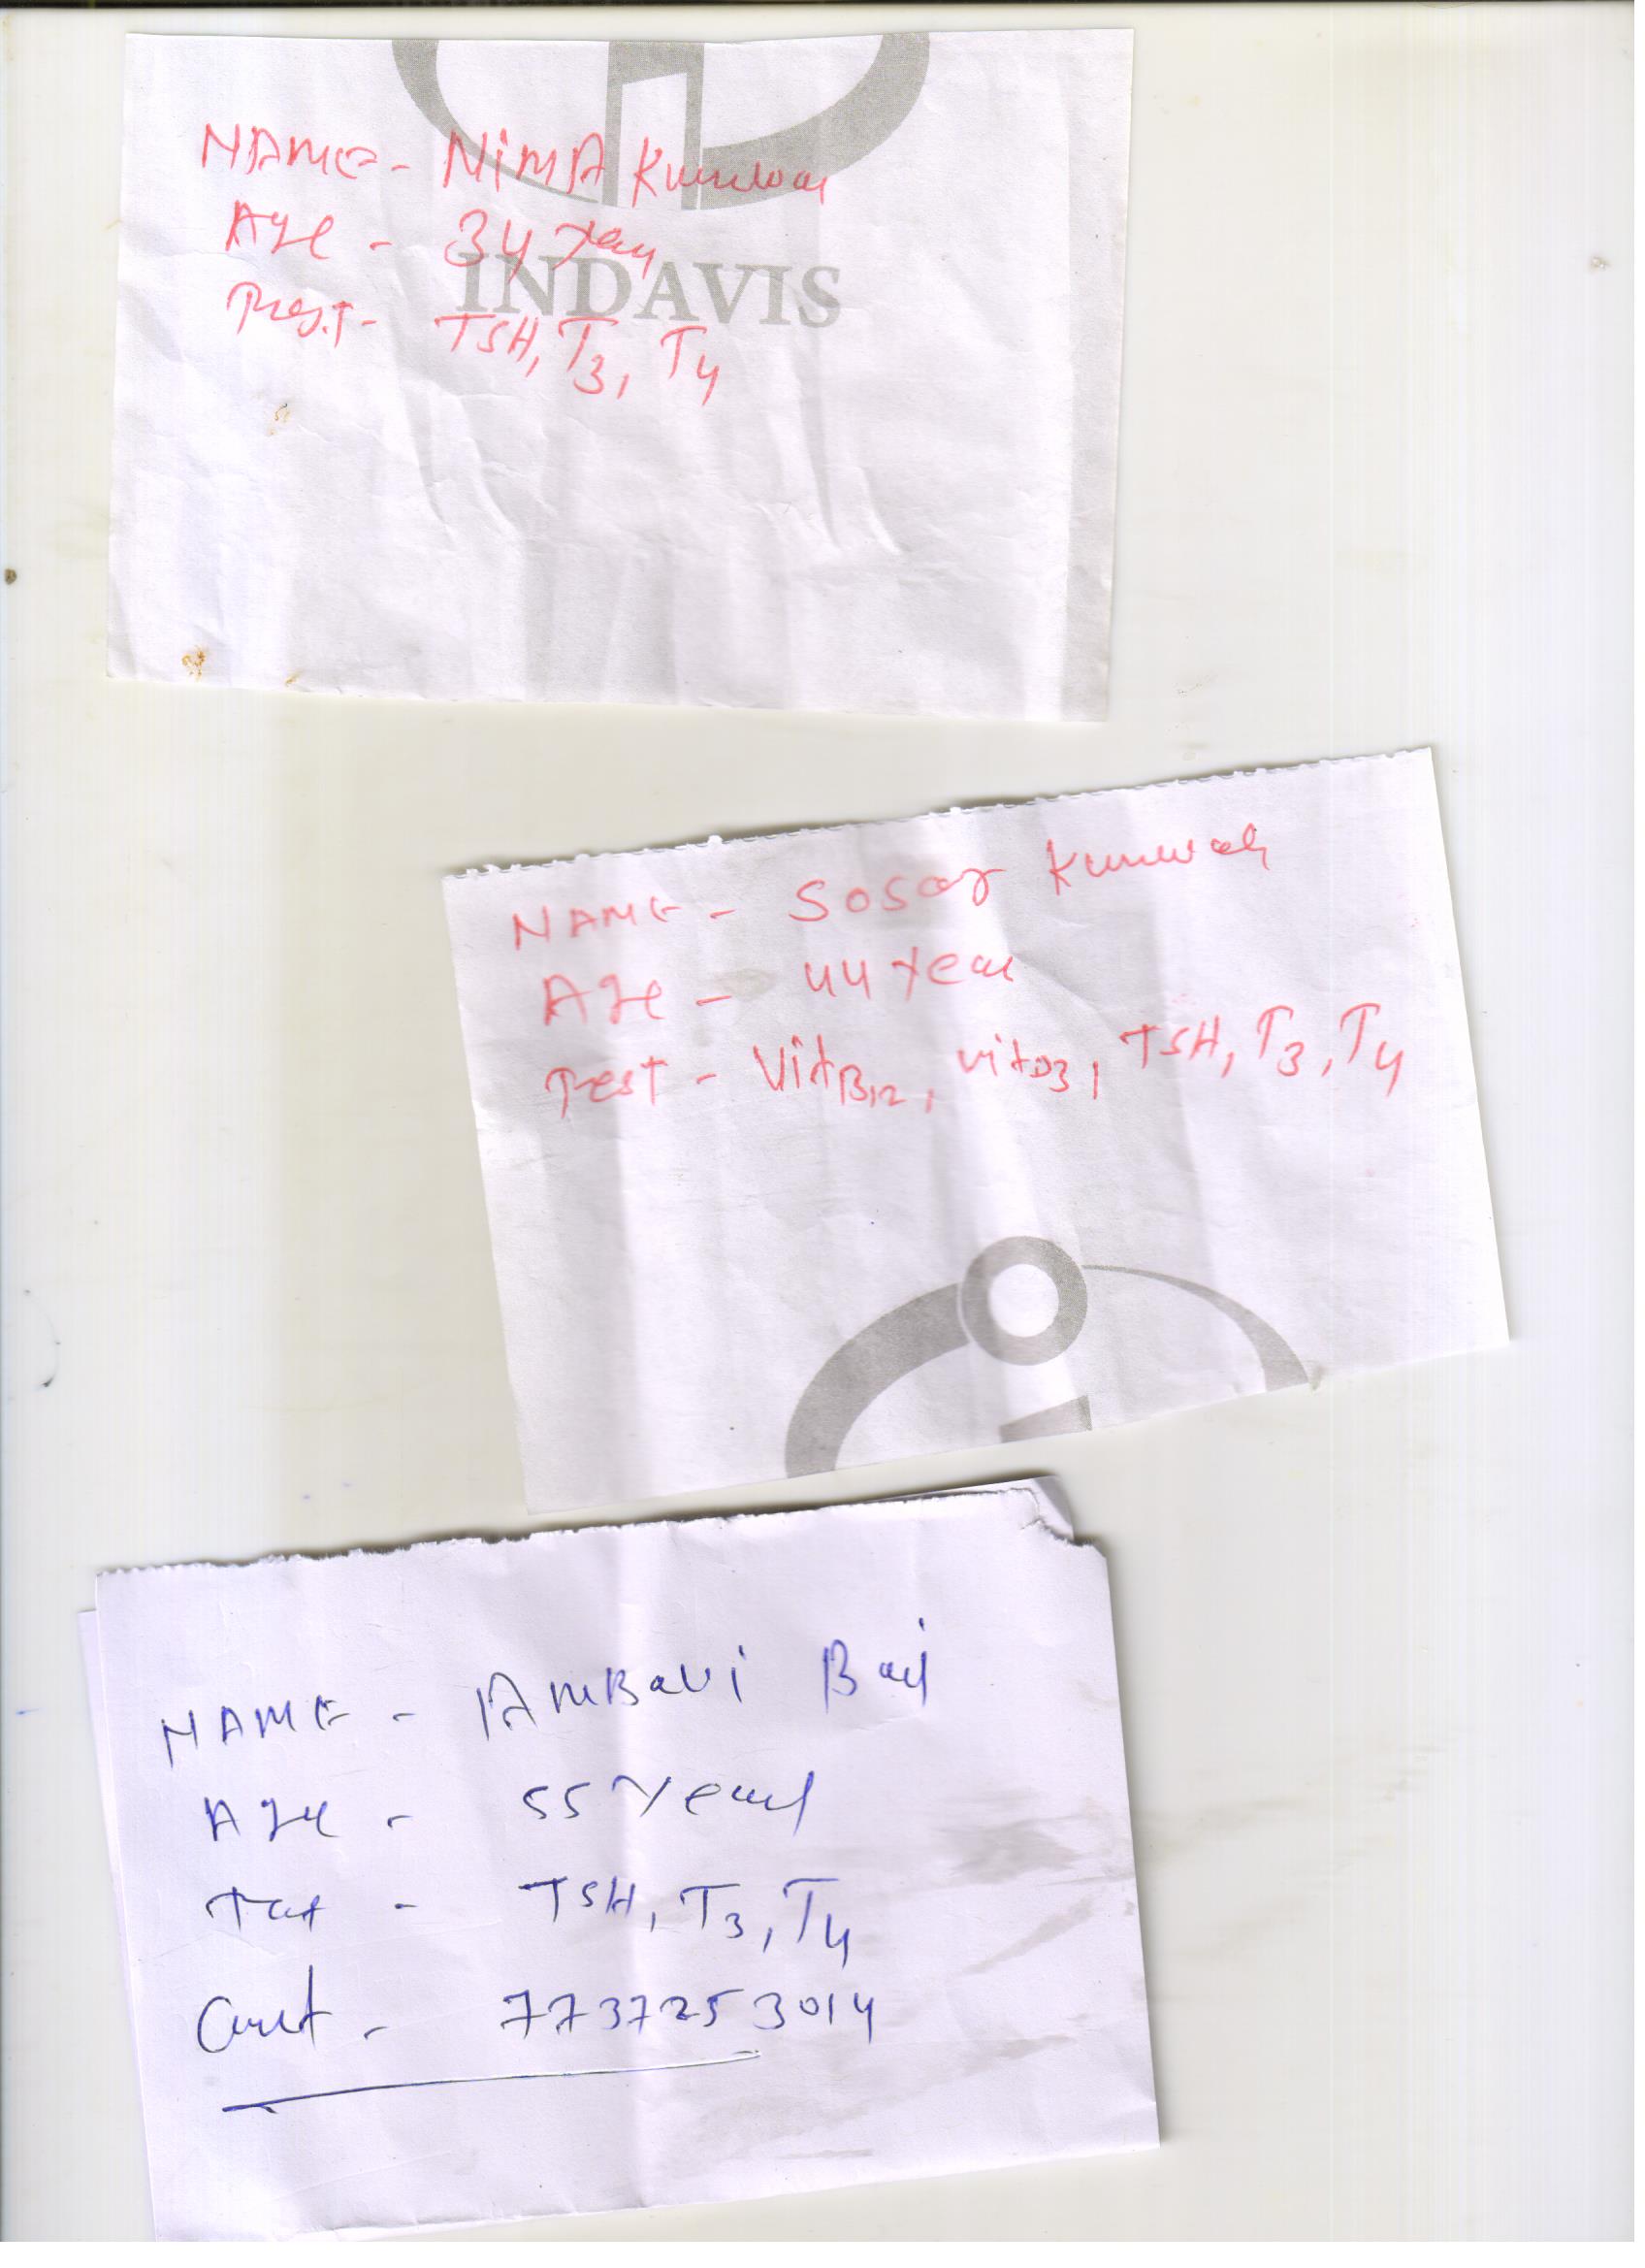 NAME - NiMA Kunwar
Age - 34 year
INDAVIS
Test - TSH, T3, T4
NAME - Sosar Kunwar
Age - 44 year
Test - Vit B12, vit D3, TSH, T3, T4
NAME - AmBavi Bai
Age - 55 Years
Test - TSH, T3, T4
Cont - 7737253014